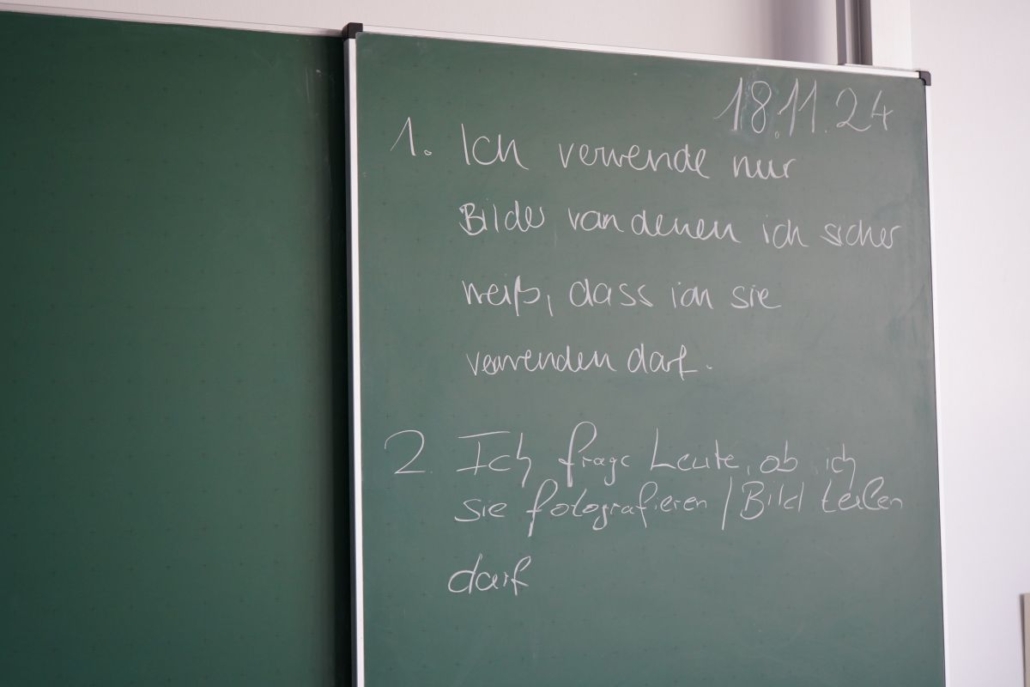 18.11.24
1. Ich verwende nur
Bilder, von denen ich sicher
weiß, dass ich sie
verwenden darf.
2. Ich frage Leute, ob ich
sie fotografieren / Bild teilen
darf